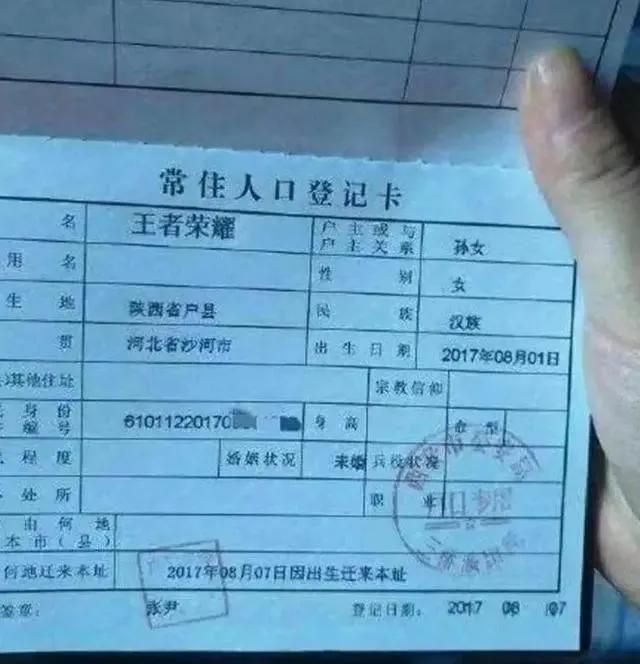 常住人口登记卡
名 王者荣耀 户主或与户主关系 孙女
用名 性别 女
生地 陕西省户县 民族 汉族
贯 河北省沙河市 出生日期 2017年08月01日
其他住址 宗教信仰
身份 编号 61011220170 身高 血型
程度 婚姻状况 未婚 兵役状况
处所 职业
由何地
本市(县)
何地迁来本址 2017年08月07日因出生迁来本址
签章: 张尹 登记日期: 2017 08 07